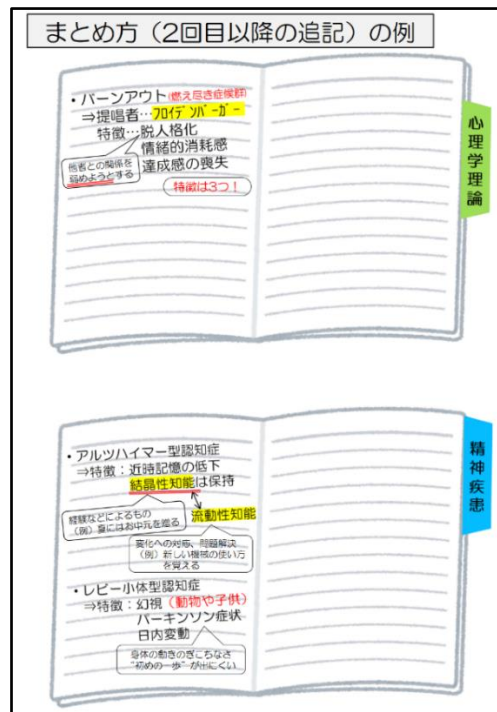 まとめ方（2回目以降の追記）の例
・バーンアウト(燃え尽き症候群)
⇒提唱者…フロイデンバーガー
特徴…脱人格化
情緒的消耗感
達成感の喪失
他者との関係を
弱めようとする
特徴は3つ！
心理学理論
・アルツハイマー型認知症
⇒特徴：近時記憶の低下
結晶性知能は保持
経験などによるもの
（例）夏にはお中元を贈る
流動性知能
変化への対応、問題解決
（例）新しい機械の使い方
を覚える
・レビー小体型認知症
⇒特徴：幻視（動物や子供）
パーキンソン症状
日内変動
身体の動きのぎこちなさ
"初めの一歩"が出にくい
精神疾患